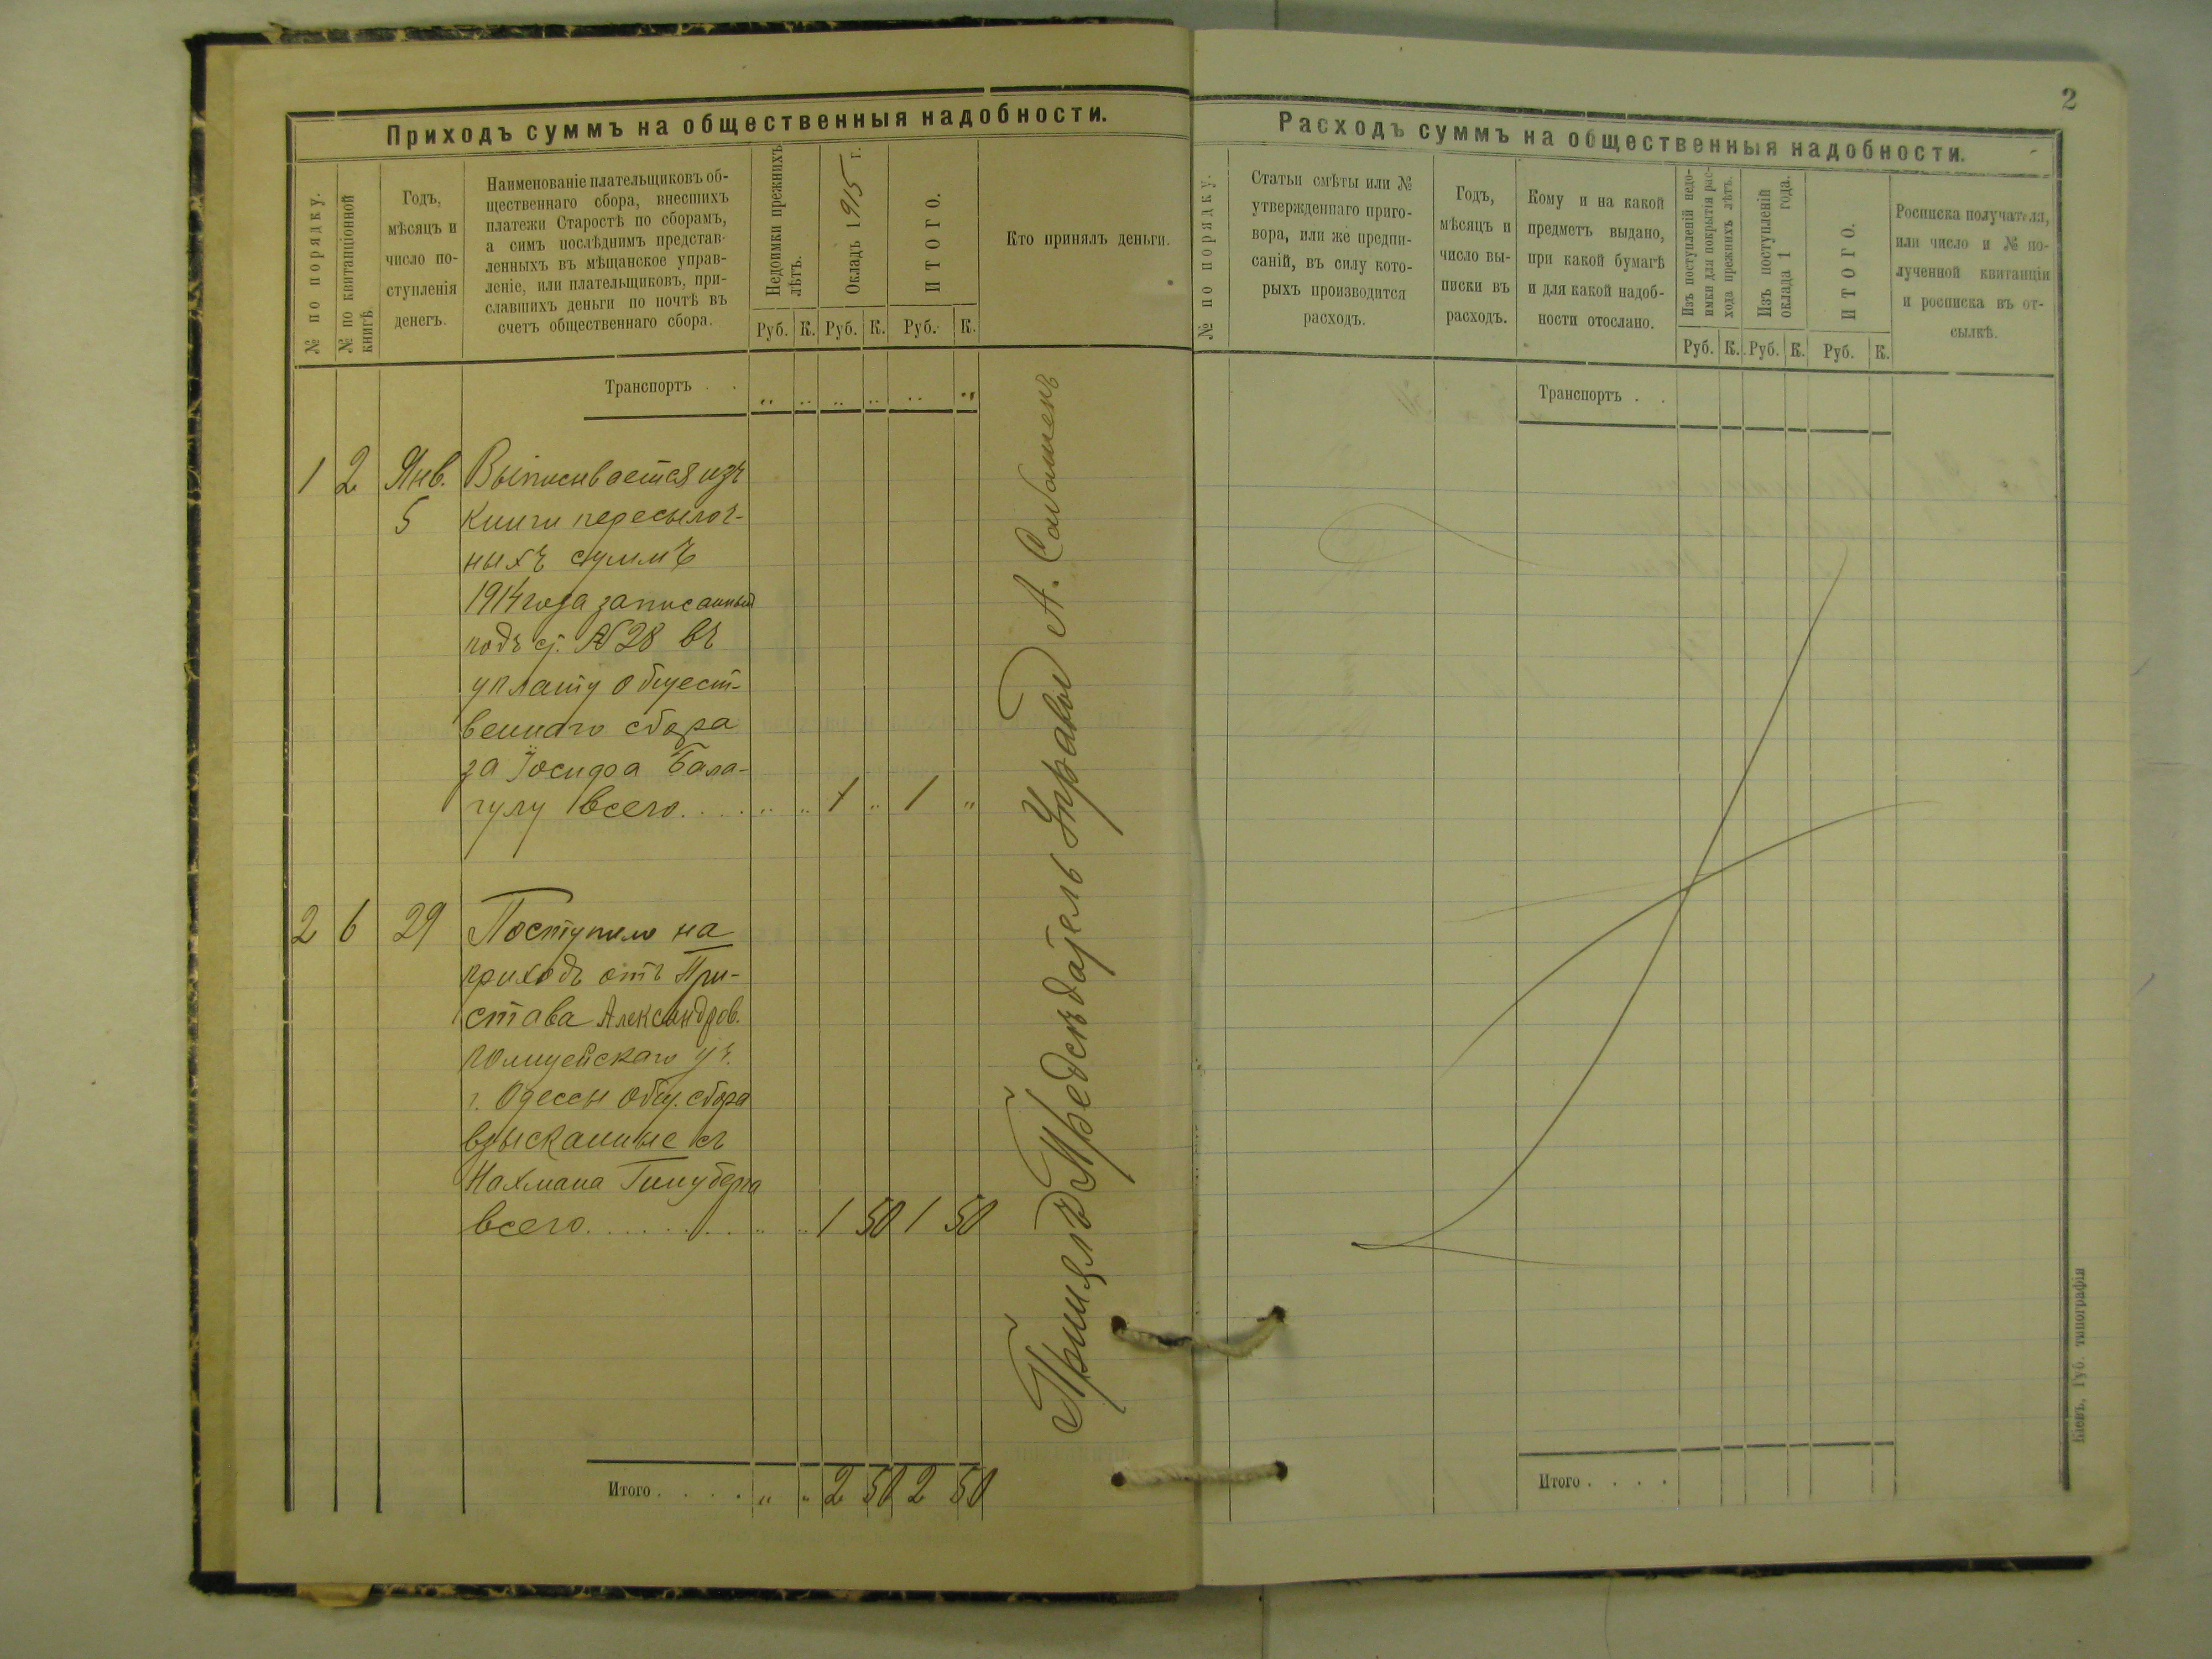 Приходъ суммъ на общественныя надобности.
№ по порядку.
№ по квитанціонной
книгѣ.
Годъ,
мѣсяцъ и
число по-
ступленія
денегъ.
Наименованіе плательщиковъ об-
щественнаго сбора, внесшихъ
платежи Старостѣ по сборамъ,
а симъ послѣднимъ представ-
ленныхъ въ мѣщанское управ-
леніе, или плательщиковъ, при-
славшихъ деньги по почтѣ въ
счетъ общественнаго сбора.
Недоимки прежнихъ
лѣтъ.
Окладъ 1915 г.
ИТОГО.
Кто принялъ деньги.
Руб. К. Руб. К. Руб. К.
Транспортъ . . „ „ „ „ „ „
1 2 Янв. Выписывается изъ
5 книги пересылоч-
ныхъ суммъ
1914 года записанный
подъ ст. № 28 въ
уплату общест-
веннаго сбора
за Іосифа Бала-
гулу всего. . . . „ „ 1 „ 1 „
2 6 29 Поступило на
приходъ отъ При-
става Александров.
полицейскаго уч.
г. Одессы общ. сбора
взысканные съ
Нахмана
всего. . . . . . . „ „ 1 50 1 50
Итого . . . . „ „ 2 50 2 50
Принялъ Предсѣдатель Управы А.
2
Расходъ суммъ на общественныя надобности.
№ по порядку.
Статьи смѣты или №
утвержденнаго приго-
вора, или же предпи-
саній, въ силу кото-
рыхъ производится
расходъ.
Годъ,
мѣсяцъ и
число вы-
писки въ
расходъ.
Кому и на какой
предметъ выдано,
при какой бумагѣ
и для какой надоб-
ности отослано.
Изъ поступленій недо-
имки для покрытія рас-
хода прежнихъ лѣтъ.
Изъ поступленій
оклада 1 года.
ИТОГО.
Росписка получателя,
или число и № по-
лученной квитанціи
и росписка въ от-
сылкѣ.
Руб. К. Руб. К. Руб. К.
Транспортъ . .
Итого . . . .
Кіевъ, Губ. типографія